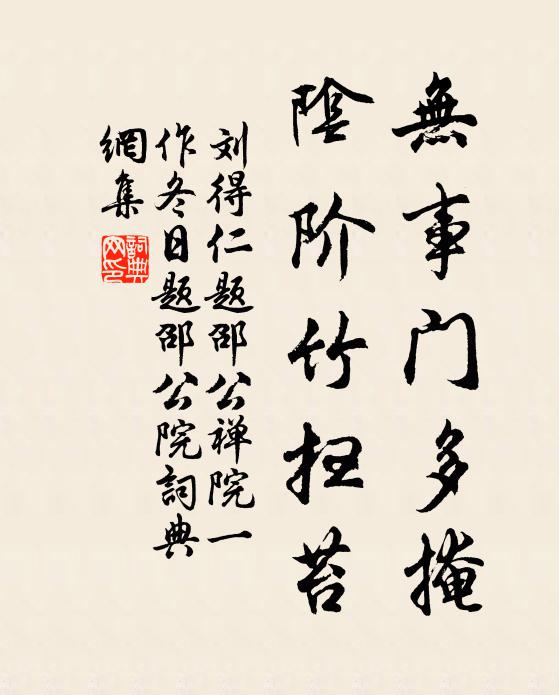 無事门多掩
陰阶竹扫苔
刘得仁题邵公禅院一
作冬日题邵公院詞典
網集
詞典
网印